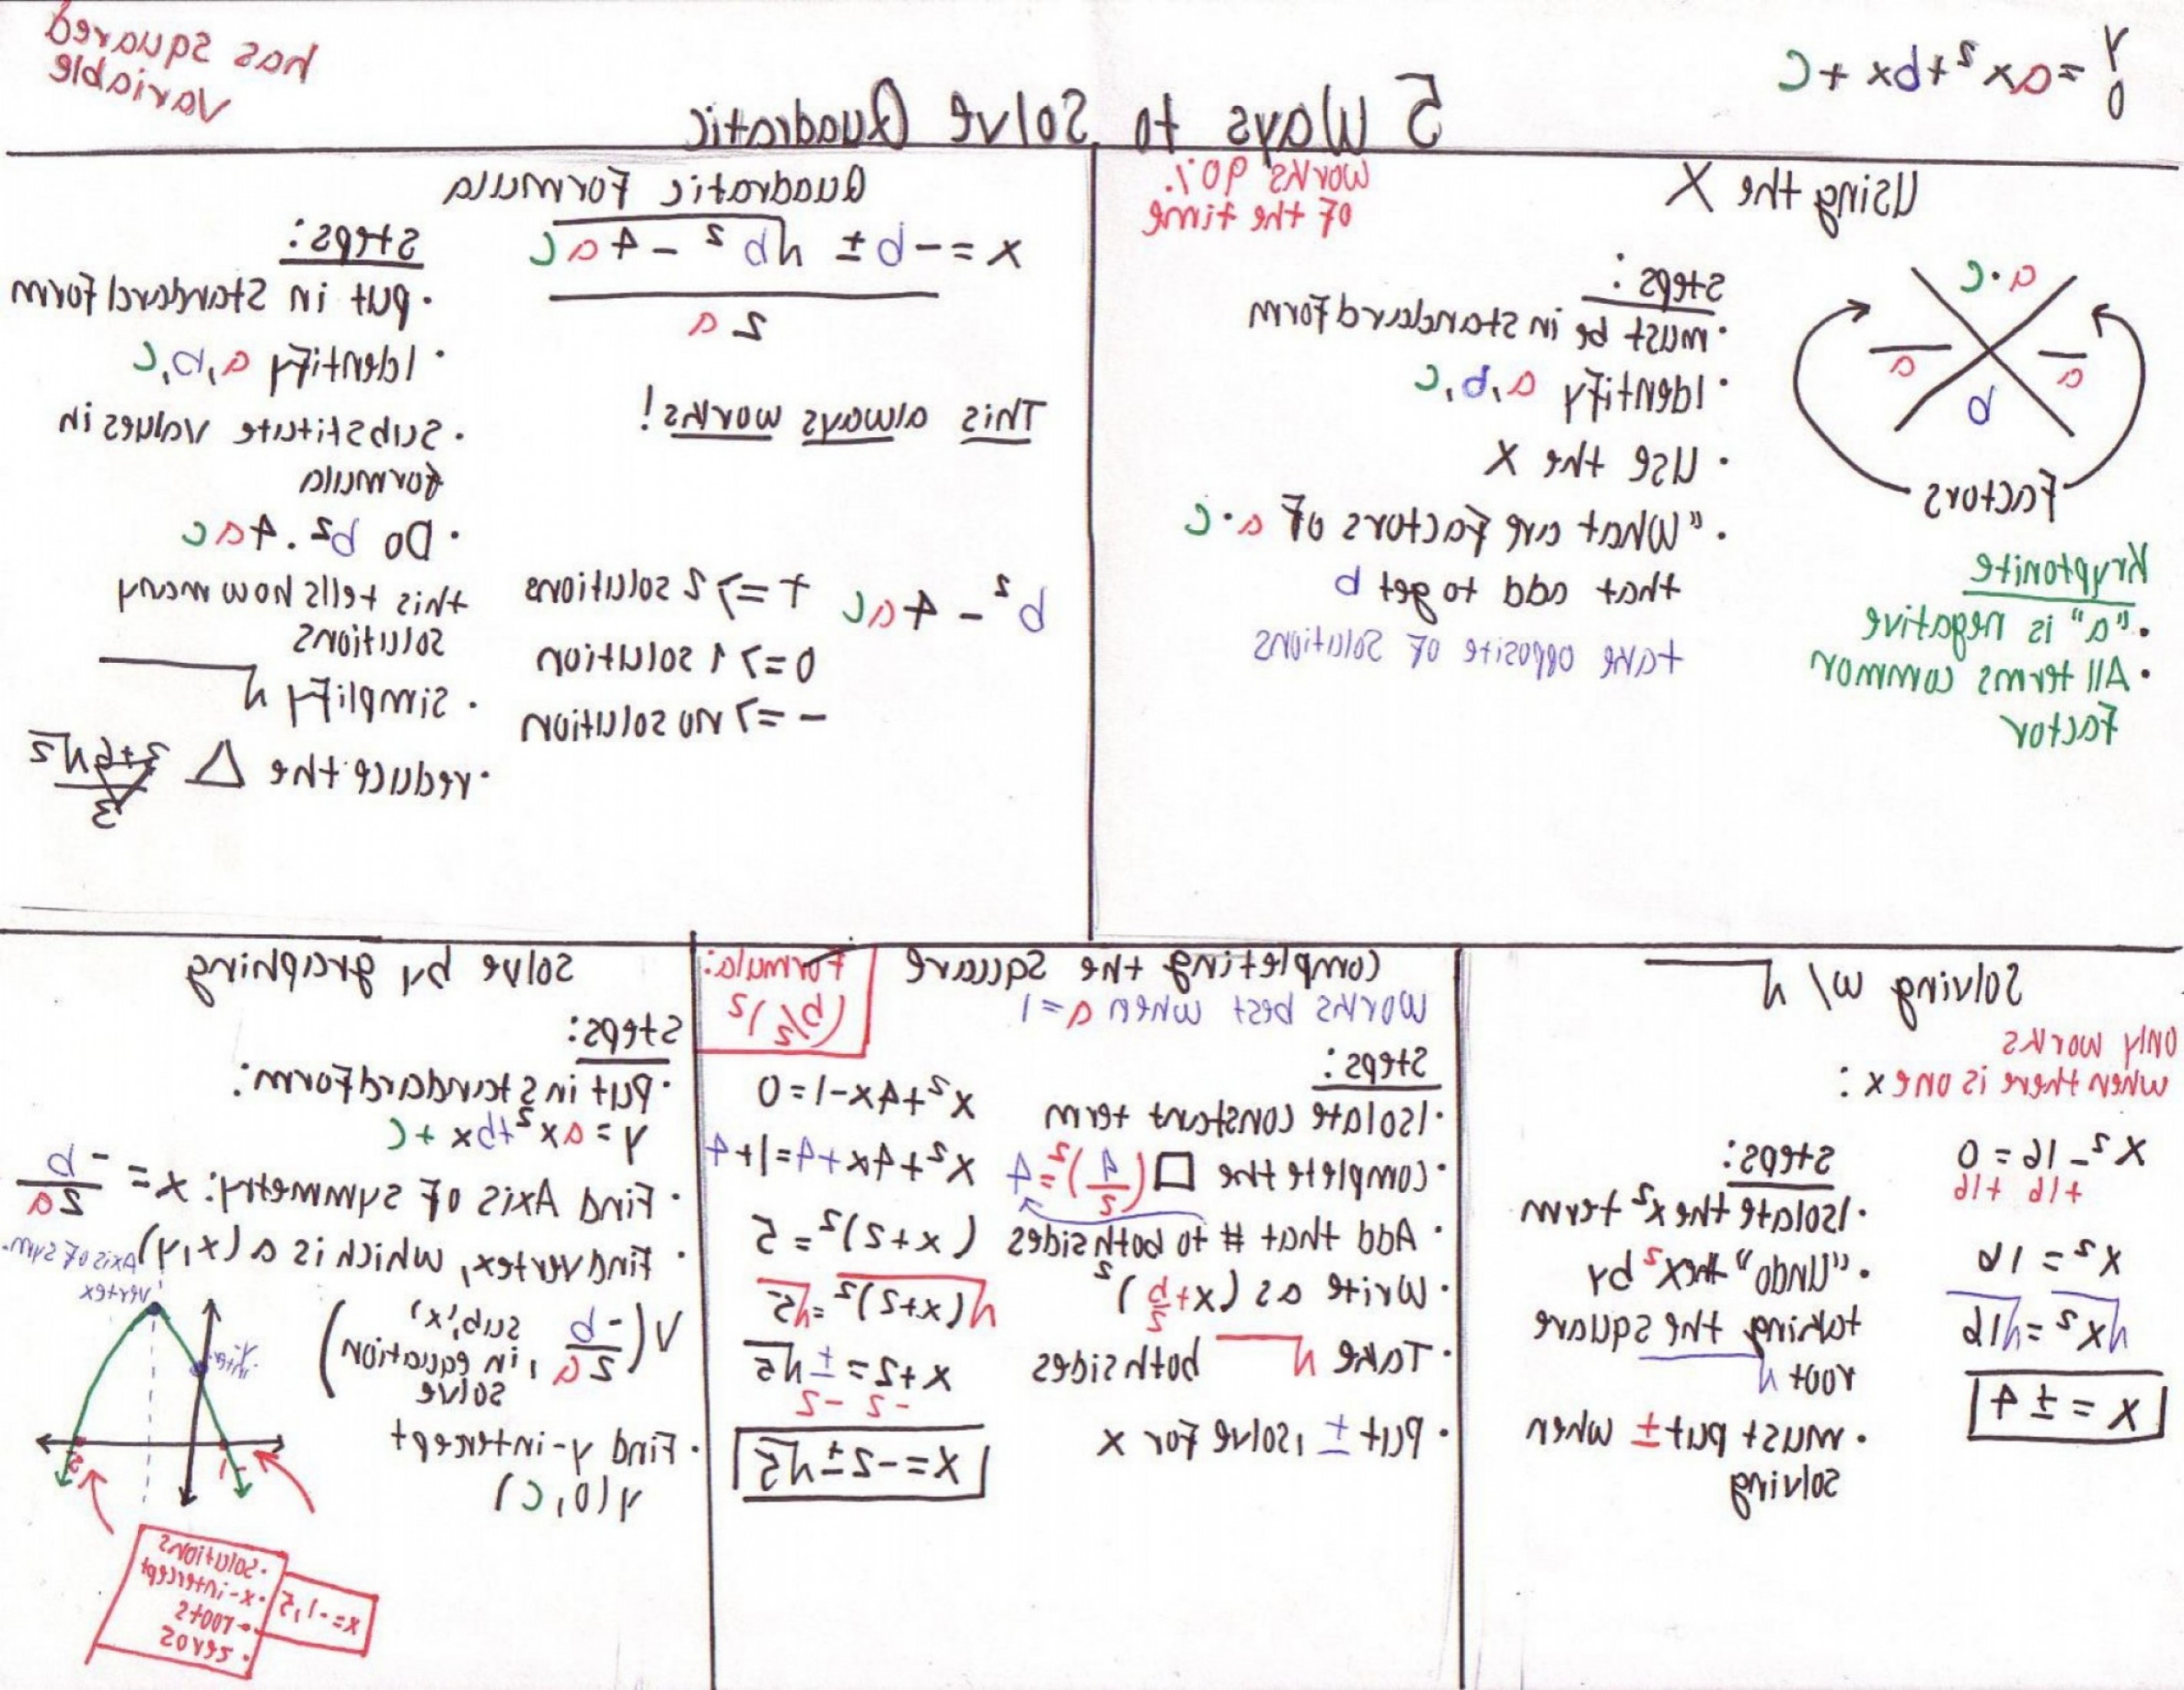 y = ax² + bx + c
0
has squared
variable
5 Ways to Solve Quadratic
Using the X
works 90%
of the time
a·c
a
a
b
Factors
Kryptonite
• "a" is negative
• All terms common
Factor
Steps:
• must be in standard form
• Identify a, b, c
• Use the X
• "What are factors of a·c
that add to get b
take opposite of solutions
Quadratic Formula
x = -b ± √b² - 4ac
2a
This always works!
b² - 4ac
+ => 2 solutions
0 => 1 solution
- => no solution
Steps:
• put in standard form
• Identify a, b, c
• Substitute values in
formula
• Do b². 4ac
this tells how many
solutions
• Simplify √
• reduce the △ 3+6√2
3
Solving w/ √
only works
when there is one x:
x² - 16 = 0
+16 +16
x² = 16
√x² = √16
x = ± 4
Steps:
• Isolate the x² term
• "Undo" the x² by
taking the square
root √
• must put ± when
solving
Completing the Square
Works best when a = 1
Formula:
(b/2)²
Steps:
• Isolate constant term
• Complete the □ (4/2)² = 4
• Add that # to both sides
• Write as (x + b/2)²
• Take √ both sides
• Put ±, solve for x
x² + 4x - 1 = 0
x² + 4x + 4 = 1 + 4
(x + 2)² = 5
√(x+2)² = √5
x + 2 = ± √5
-2 -2
x = -2 ± √5
Solve by graphing
Steps:
• Put in Standard Form:
y = ax² + bx + c
• Find Axis of Symmetry: x = -b/2a
• Find vertex, which is a (x, y)
V(-b/2a, sub 'x' in equation solve)
• Find y-intercept
y(0, c)
Axis of sym.
vertex
y-int.
-1
5
• solutions
• x-intercept
• roots
• zeros
x = -1, 5